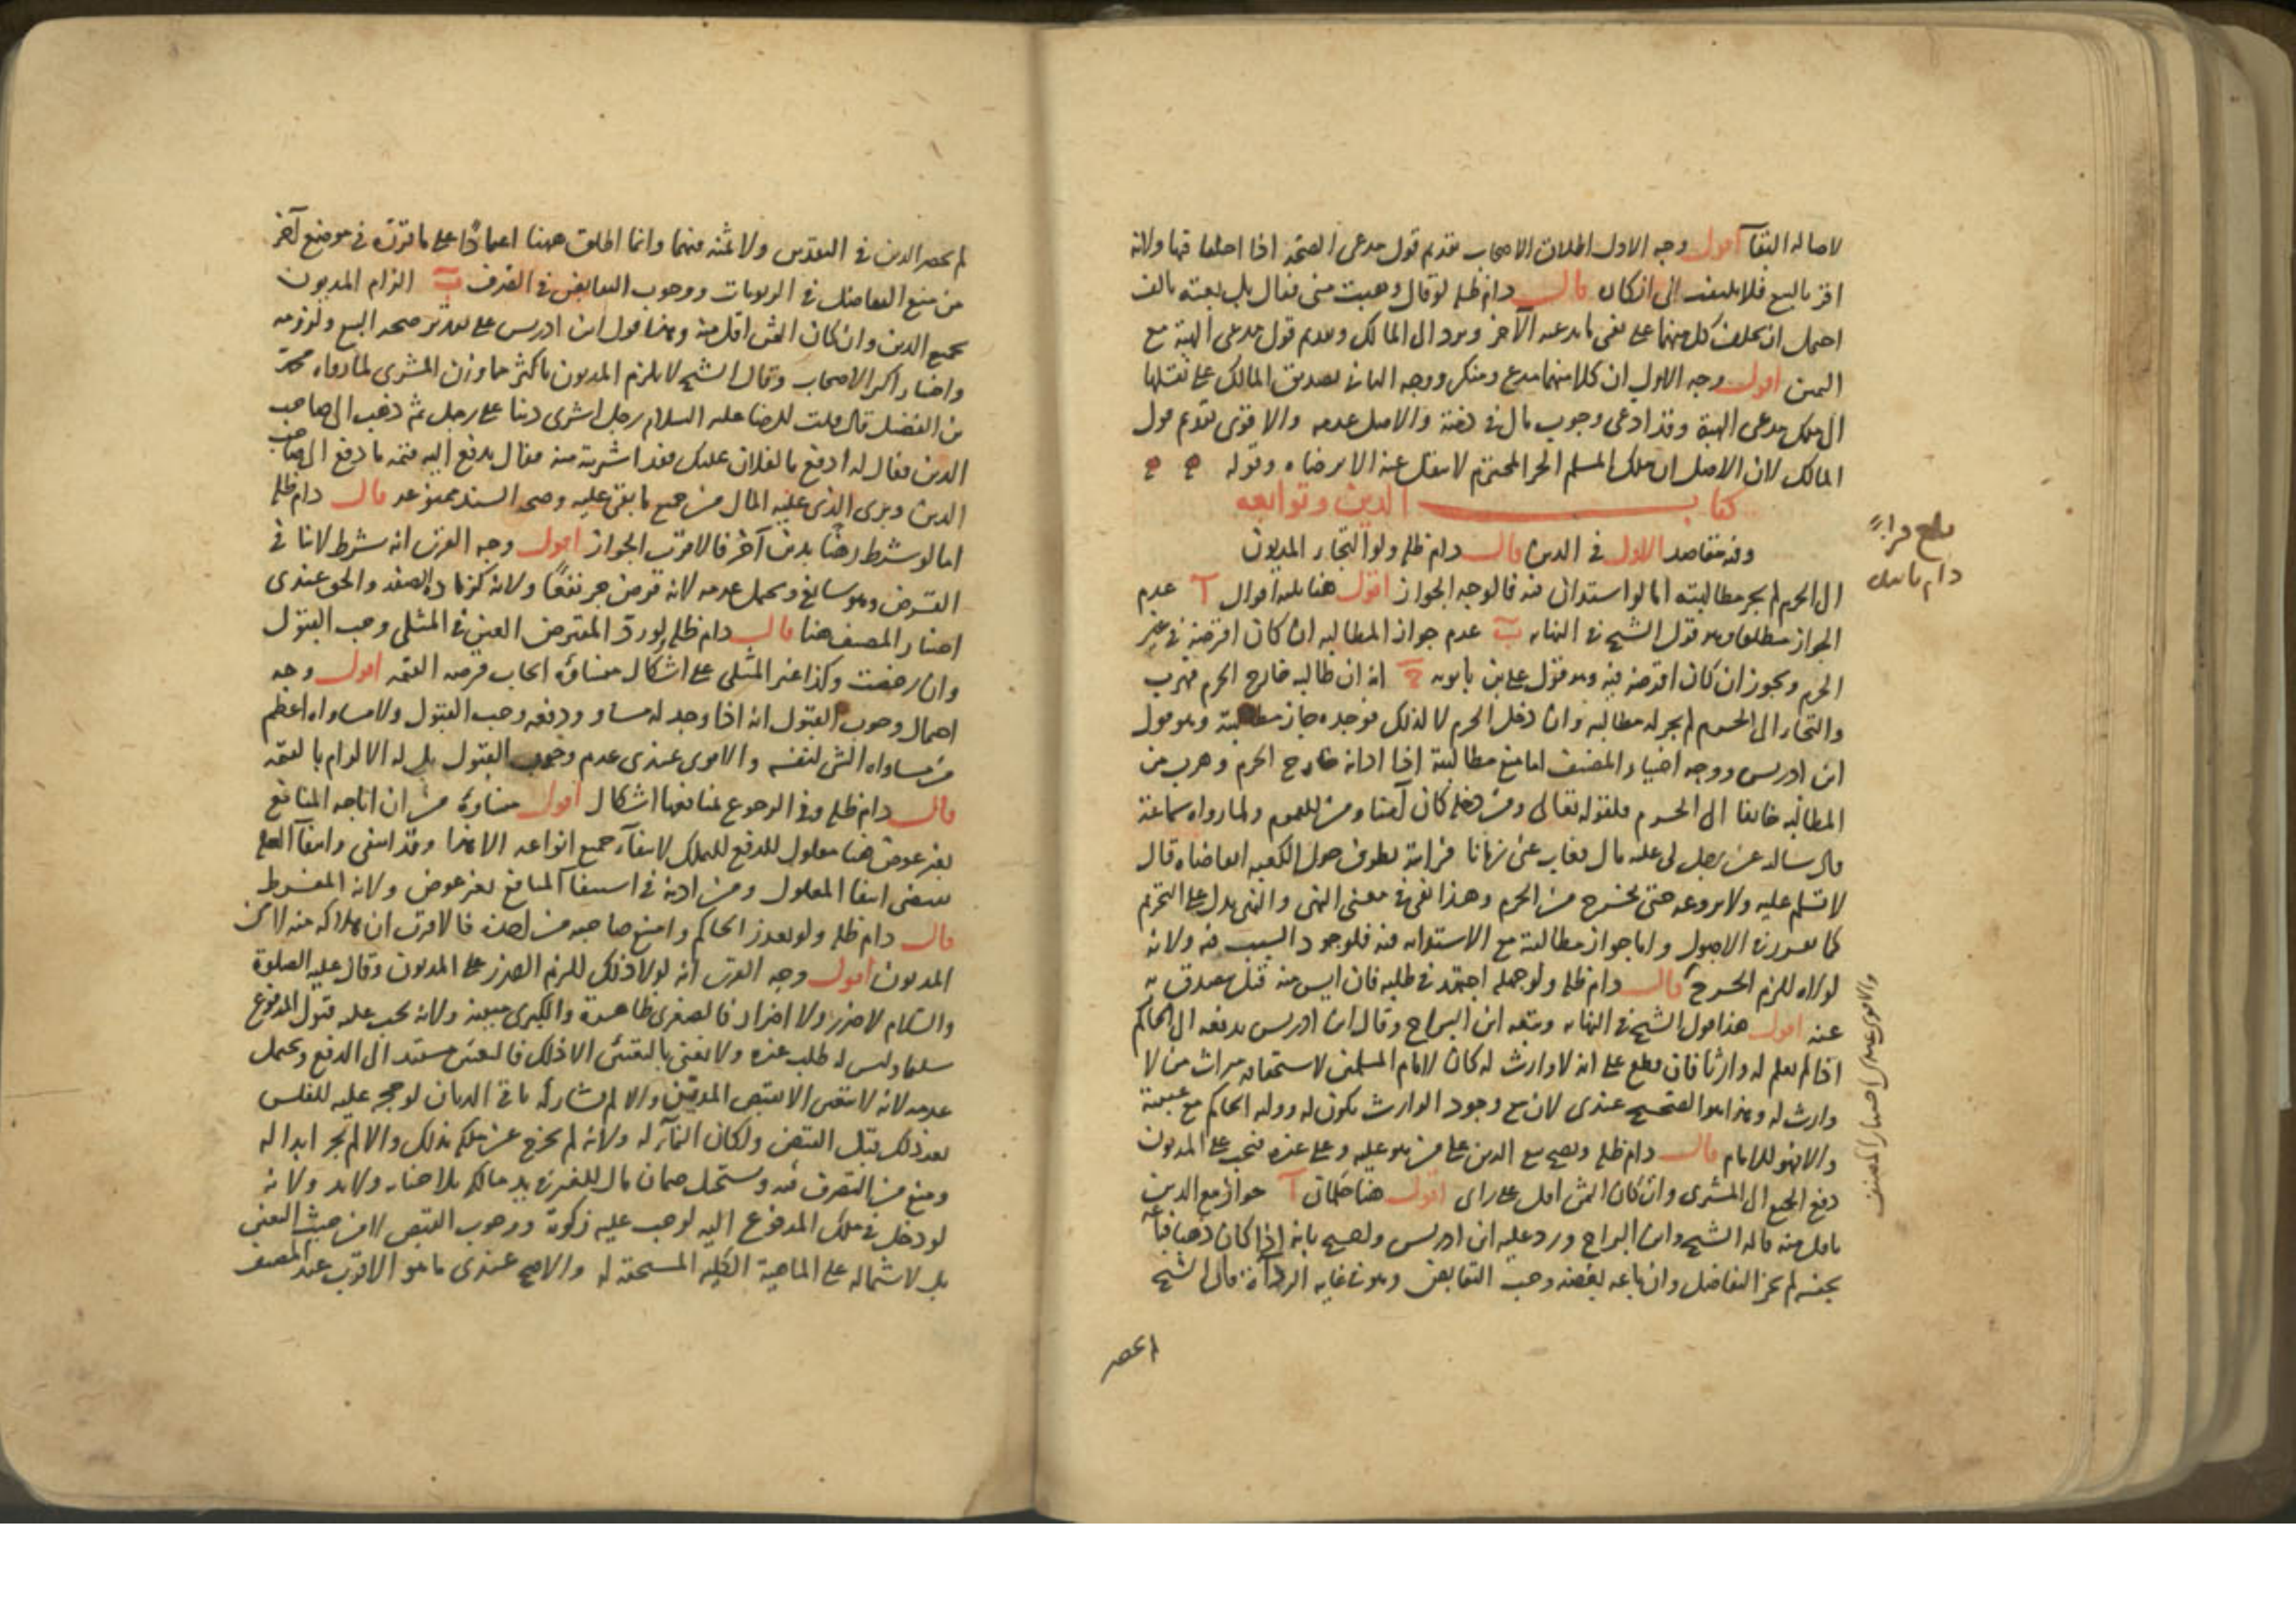 لاصالة البقآ اقول وجه الاول اطلاق الاصحاب تقديم قول مدعى الصحة اذا اختلفا فيها ولانه
اقر بالبيع فلا يلتفت الى انكاره قال دام ظله لو قال وهبت منى فقال بل بعته بالف
احتمل ان يحلف كل منهما على نفى ما يدعيه الآخر ويرد الى المالك وتقديم قول مدعى الهبة مع
اليمين اقول وجه الاول ان كلا منهما مدع ومنكر ووجه الثانى تصديق المالك على نقلها
الى ملك مدعى الهبة وقد ادعى وجوب مال فى ذمته والاصل عدمه والاقوى تقديم قول
المالك لان الاصل ان ملك المسلم الحر المحترم لا ينتقل عنه الا برضاه وقوله
كتاب الدين وتوابعه
وفيه مقاصد الاول فى الدين قال دام ظله ولو التجأ المديون
الى الحرم لم يجز مطالبته اما لو استدان فيه فالوجه الجواز اقول هنا ثلثة اقوال آ عدم
الجواز مطلقا وهو قول الشيخ فى النهاية ب عدم جواز المطالبة ان كان اقرضه فى غير
الحرم ويجوز ان كان اقرضه فيه وهو قول على بن بابويه ج انه ان طالبه خارج الحرم فهرب
والتجأ الى الحرم لم يجز له مطالبته وان دخل الحرم لا لذلك فوجده جاز مطالبته وهو قول
ابن ادريس ووجه اختيار المصنف اما منع مطالبته اذا ادانه خارج الحرم وهرب من
المطالبة خائفا الى الحرم فلقوله تعالى ومن دخله كان آمنا ومن للعموم ولما رواه سماعة
قال سالته عن رجل لى عليه مال فغاب عنى زمانا فرايته يطوف حول الكعبة افاتقاضاه قال
لا تسلم عليه ولا تروعه حتى يخرج من الحرم وهذا نفى فى معنى النهى والنهى يدل على التحريم
كما تقرر فى الاصول واما جواز مطالبته مع الاستدانة فيه فلوجود السبب فيه ولانه
لولاه للزم الحرج قال دام ظله ولو جهله اجتهد فى طلبه فان ايس منه قيل يتصدق به
عنه اقول هذا قول الشيخ فى النهاية وتبعه ابن البراج وقال ابن ادريس يدفعه الى الحاكم
اذا لم يعلم له وارثا فان قطع على انه لا وارث له كان لامام المسلمين لاستحقاقه ميراث من لا
وارث له وهذا هو الصحيح عندى لان مع وجود الوارث يكون له ووليه الحاكم مع غيبته
والا فهو للامام قال دام ظله ويصح بيع الدين على من هو عليه وعلى غيره فيجب على المديون
دفع الجميع الى المشترى وان كان الثمن اقل على راى اقول هنا حكمان آ جواز بيع الدين
باقل منه قاله الشيخ وابن البراج ورد عليه ابن ادريس ولصيح بانه اذا كان ذهبا فباعه
بجنسه لم يجز التفاضل وان باعه بفضة وجب التقابض وهو فى غاية الرداءة فان الشيخ
لم يحصر
بلغ قراءة
دام تاييده
والاقوى عندى اختيار المصنف
لم يحصر الدين فى النقدين ولا ثمنه فيهما وانما اطلق ههنا اعتمادا على ما قرره فى موضع آخر
من منع التفاضل فى الربويات ووجوب التقابض فى الصرف ب الزام المديون
بجميع الدين وان كان الثمن اقل منه وهذا قول ابن ادريس على تقدير صحة البيع ولزومه
واختيار اكثر الاصحاب وقال الشيخ لا يلزم المديون باكثر مما وزن المشترى لما رواه محمد
بن الفضيل قال قلت للرضا عليه السلام رجل اشترى دينا على رجل ثم ذهب الى صاحب
الدين فقال له ادفع ما لفلان عليك فقد اشتريته منه فقال يدفع اليه قيمة ما دفع الى صاحب
الدين وبرى الذى عليه المال من جميع ما بقى عليه وصحة السند ممنوعة قال دام ظله
اما لو شرط رهنا بدين آخر فالاقرب الجواز اقول وجه القرب انه شرط لا ينافى
القرض وهو سائغ ويحتمل عدمه لانه قرض جر نفعا ولانه كزيادة الصفة والحق عندى
اختيار المصنف هنا قال دام ظله لو رد المقترض العين فى المثلى وجب القبول
وان رخصت وكذا غير المثلى على اشكال منشاؤه ايجاب قرضه القيمة اقول وجه
احتمال وجوب القبول انه اذا وجد له مساو ودفعه وجب القبول ولا مساواة اعظم
من مساواة الشى لنفسه والاقوى عندى عدم وجوب القبول بل له الالزام بالقيمة
قال دام ظله وفى الرجوع بمنافعها اشكال اقول منشاؤه من ان اباحة المنافع
بغير عوض هنا معلول للدفع للتملك لانتفآء جميع انواعه الا هذا وقد انتفى وانتفآ العلة
يقتضى انتفا المعلول ومن اذنه فى استيفآ المنافع بغير عوض ولانه المفرط
قال دام ظله ولو تعذر الحاكم وامتنع صاحبه من اخذه فالاقرب ان هلاكه منه لا من
المديون اقول وجه القرب انه لولا ذلك للزم الضرر على المديون وقال عليه الصلوة
والسلام لا ضرر ولا اضرار فالصغرى ظاهرة والكبرى مبينة ولانه يجب عليه قبول المدفوع
سلما وليس له طلب غيره ولا يعنى بالتعيين الا ذلك فالتعين مستند الى الدفع ويحتمل
عدمه لانه لا يتعين الا بقبض المديون والا لم يشاركه باقى الديان لو حجر عليه للفلس
بعد ذلك قبل القبض ولكان النمآء له ولانه لم يخرج عن ملكه بذلك والا لم يجز ابداله
ومنع من التصرف فيه ويستحيل ضمان مال للغير فى يد مالكه بلا جناية ولا يد ولانه
لو دخل فى ملك المدفوع اليه لوجب عليه زكوته ووجوب القبض لا من حيث التعين
بل لاشتماله على الماهية الكلية المستحقة له والاصح عندى ما هو الاقرب عند المصنف